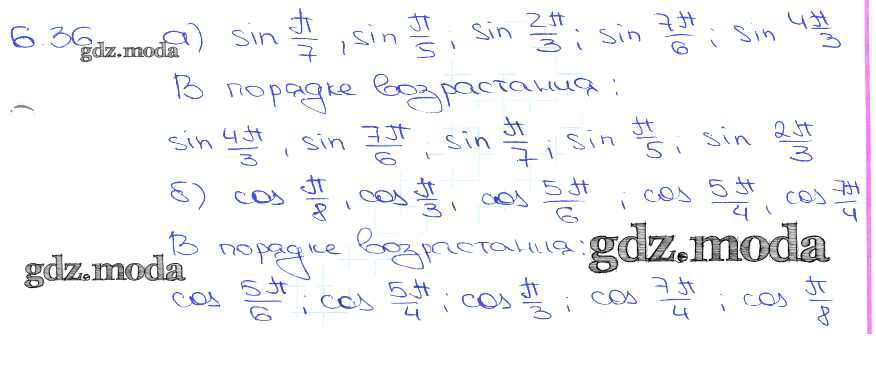 6.36 а) sin π/7, sin π/5; sin 2π/3; sin 7π/6; sin 4π/3
gdz.moda
В порядке возрастания:
sin 4π/3, sin 7π/6, sin π/7; sin π/5; sin 2π/3
б) cos π/8, cos π/3, cos 5π/6; cos 5π/4, cos 7π/4
В порядке возрастания:
gdz.moda
gdz.moda
cos 5π/6; cos 5π/4; cos π/3; cos 7π/4; cos π/8